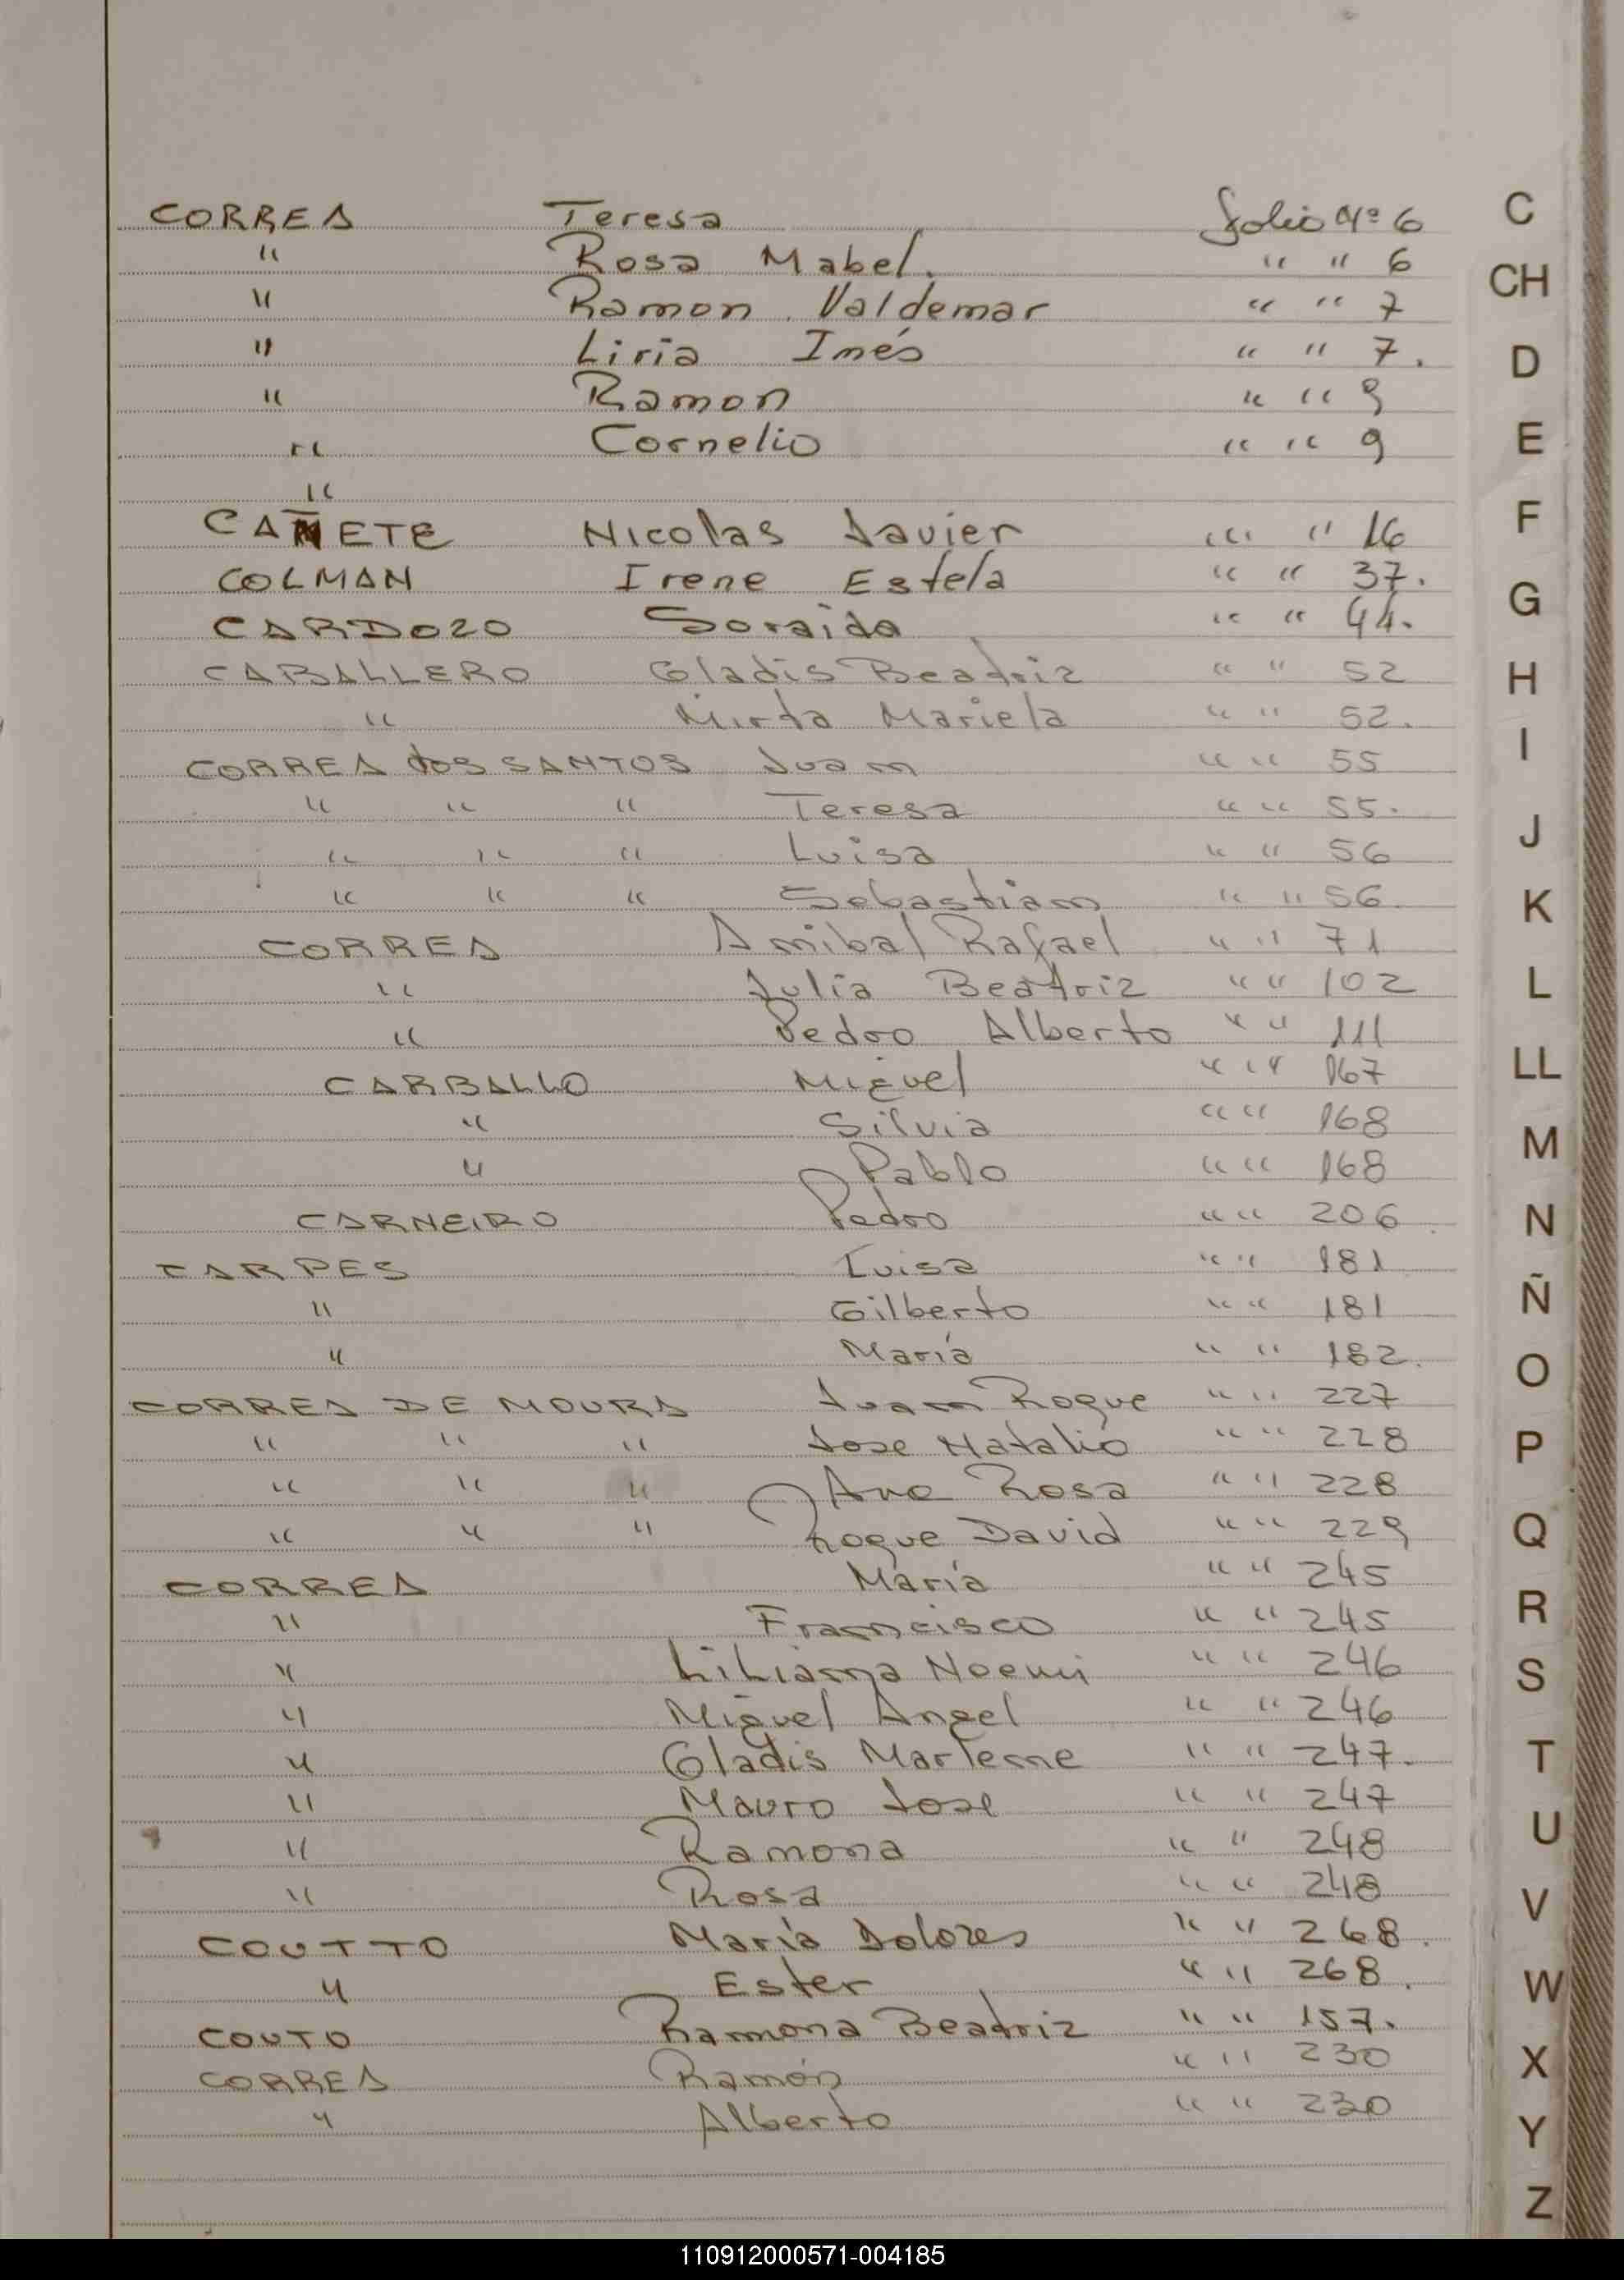 CORREA Teresa folio Nº 6
" Rosa Mabel. " " 6
" Ramon Valdemar " " 7
" Liria Inés " " 7.
" Ramon " " 9
" Cornelio " " 9
"
CAÑETE Nicolas Javier " " 16
COLMAN Irene Estela " " 37.
CARDOZO Soraida " " 44.
CABALLERO Gladis Beatriz " " 52
" Mirta Mariela " " 52.
CORREA dos SANTOS Juan " " 55
" " " Teresa " " 55.
" " " Luisa " " 56
" " " Sebastian " " 56.
CORREA Anibal Rafael " " 71
" Julia Beatriz " " 102
" Pedro Alberto " " 111
CARBALLO Miguel " " 167
" Silvia " " 168
" Pablo " " 168
CARNEIRO Pedro " " 206
CARPES Luisa " " 181
" Gilberto " " 181
" María " " 182.
CORREA DE MOURA Juan Roque " " 227
" " " Jose Natalio " " 228
" " " Ana Rosa " " 228
" " " Roque David " " 229
CORREA María " " 245
" Francisco " " 245
" Liliana Noemi " " 246
" Miguel Angel " " 246
" Gladis Marlene " " 247.
" Mauro Jose " " 247
" Ramona " " 248
" Rosa " " 248
COUTTO María Dolores " " 268.
" Ester " " 268.
COUTO Ramona Beatriz " " 157.
CORREA Ramón " " 230
" Alberto " " 230
C
CH
D
E
F
G
H
I
J
K
L
LL
M
N
Ñ
O
P
Q
R
S
T
U
V
W
X
Y
Z
110912000571-004185